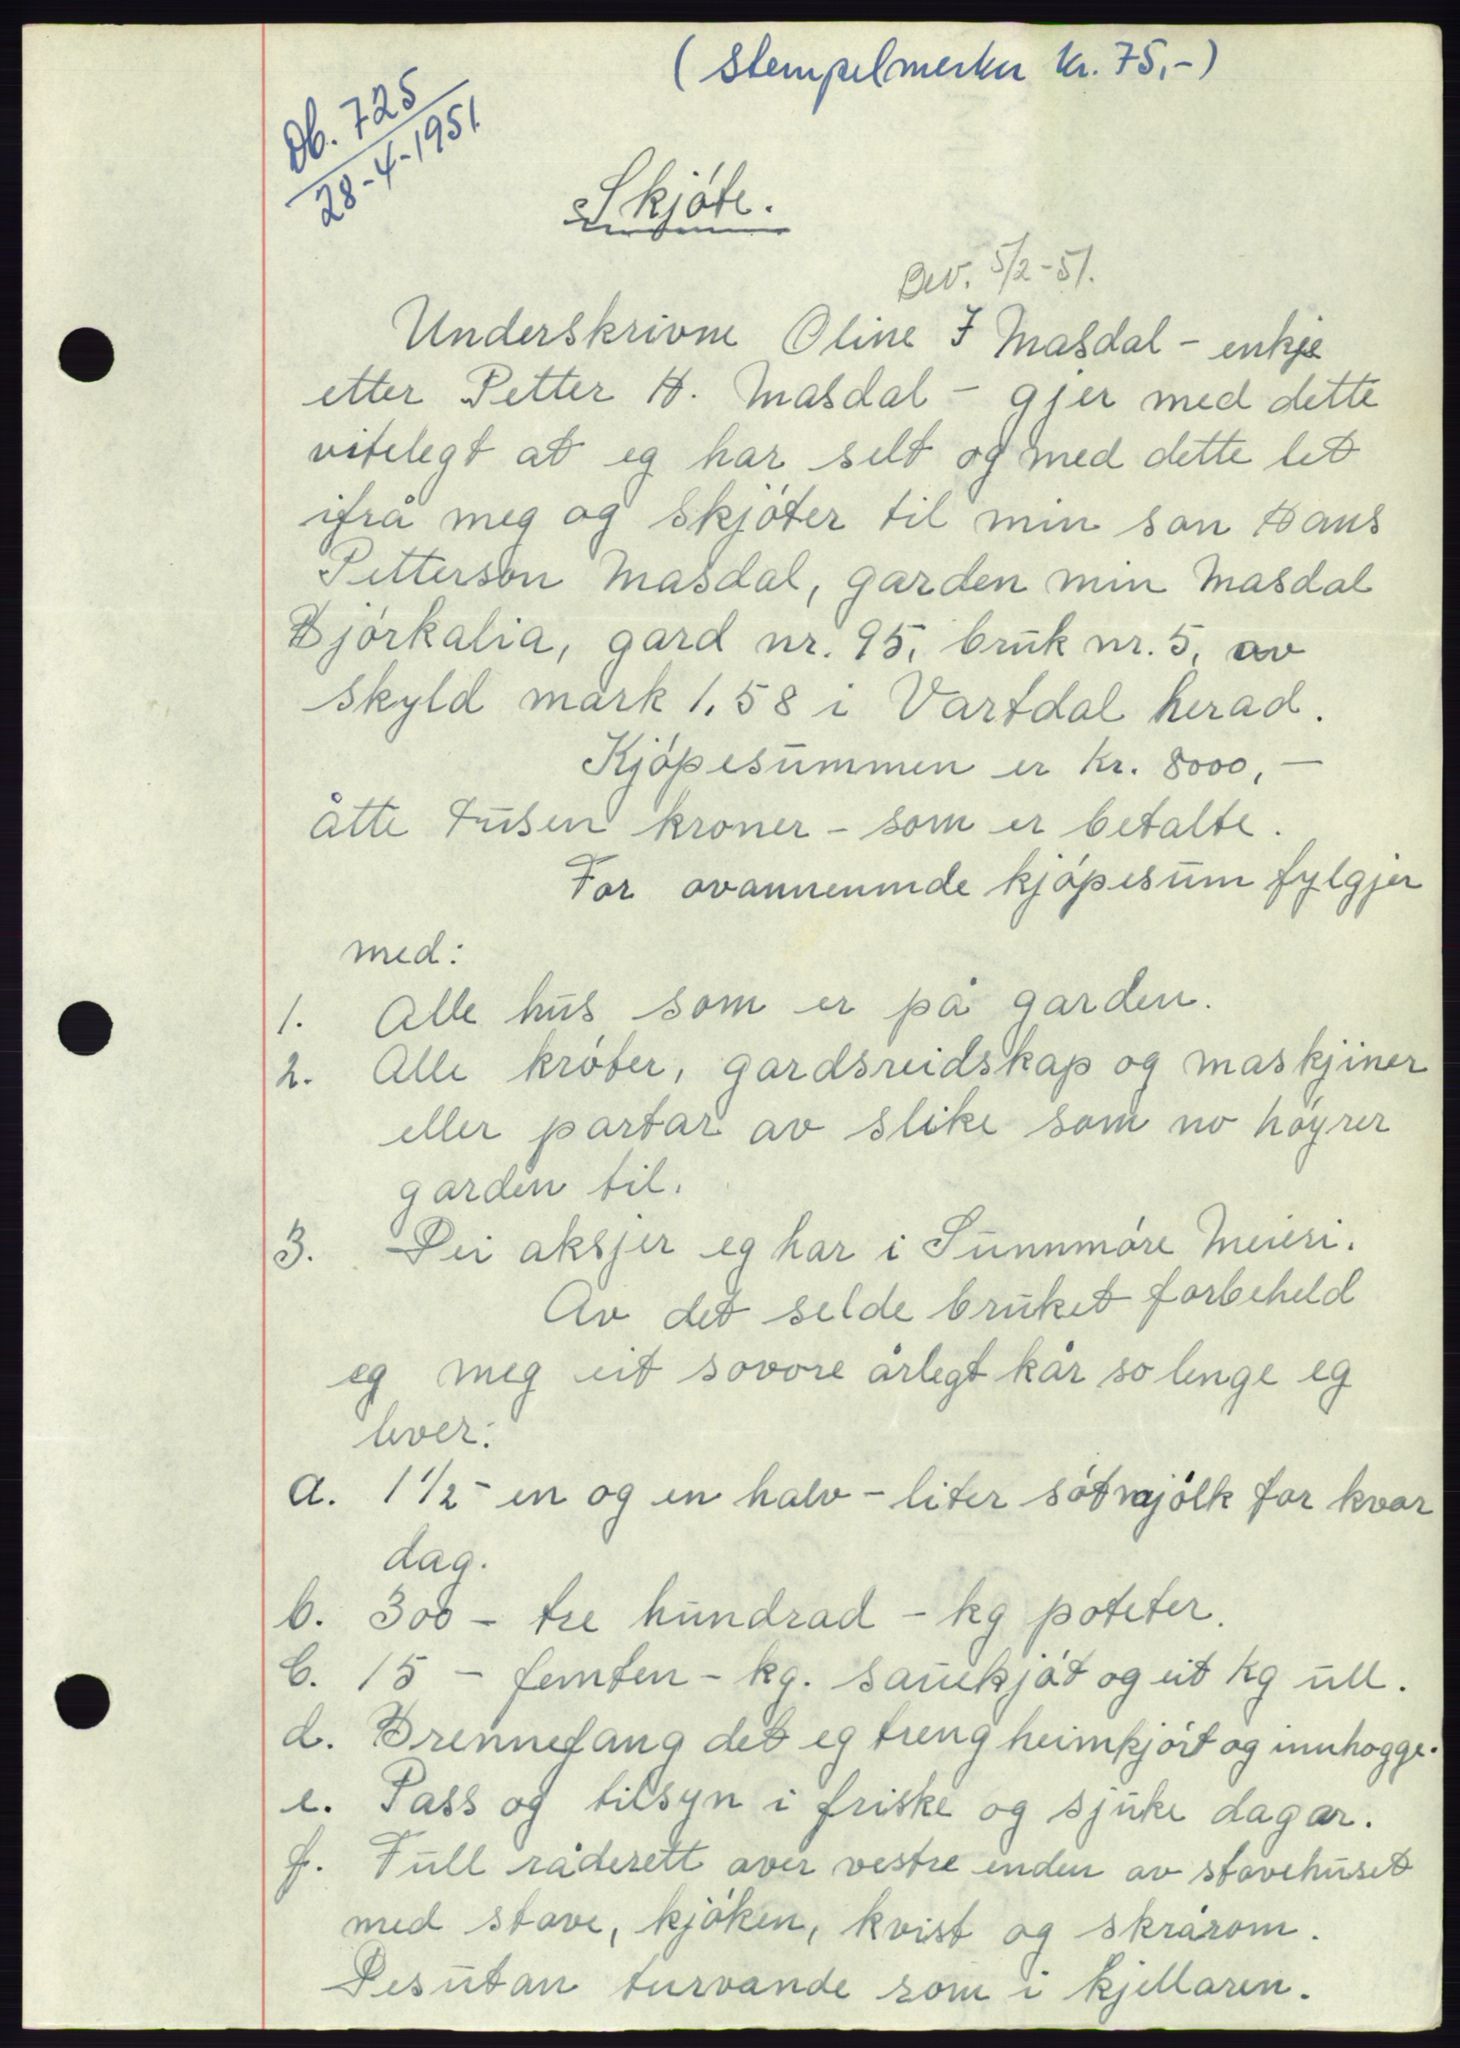 (Stempelmerker kr. 75,-)
Db. 725
28-4-1951.
Skjóte.
Bev. 5/2-51.
Underskrivne Oline I Masdal - enkje
etter Petter H. Masdal - gjer med dette
vitelegt at eg har selt og med dette let
ifrå meg og skjóter til min son Hans
Petterson Masdal, garden min Masdal
Bjórkalia, gard nr. 95, bruk nr. 5, av
skyld mark 1.58 i Vartdal herad.
Kjópesummen er kr. 8000,-
åtte tusen kroner - som er betalte.
For ovannemnde kjópesum fylgjer
med:
1. Alle hus som er på garden.
2. Alle króter, gardsreidskap og maskjiner
eller partar av slike som no hóyrer
garden til.
3. Dei aksjer eg har i Sunnmóre Meieri.
Av det selde bruket forbeheld
eg meg eit sovore årlegt kår so lenge eg
lever:
a. 1 1/2 - en og en halv - liter sótmjólk for kvar
dag.
b. 300 - tre hundrad - kg poteter.
C. 15 - femten - kg. sauekjót og eit kg ull.
d. Brennefang det eg treng heimkjórt og innhogge.
e. Pass og tilsyn i friske og sjuke dagar.
f. Full råderett over vestre enden av stovehuset
med stove, kjóken, kvist og skrårom.
Desutan turvande rom i kjellaren.